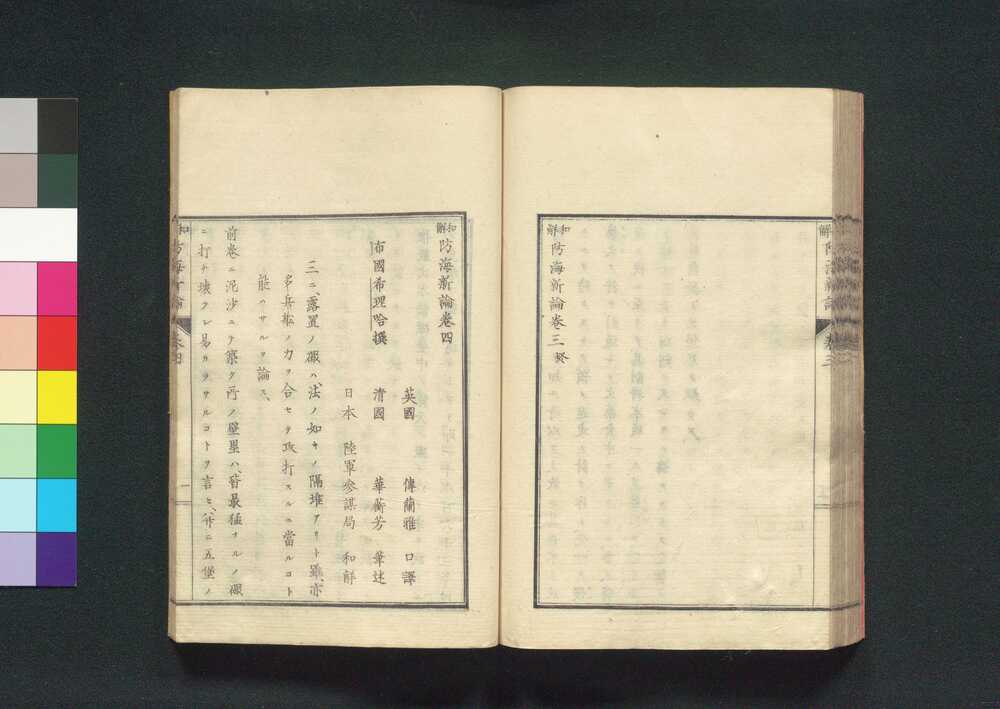 和解防海新論卷三終
和解防海新論卷四
布國希理哈撰
英國 傳蘭雅 口譯
清國 華蘅芳 筆述
日本 陸軍參謀局 和解
三ニ、露置ノ礟ハ、法ノ如キノ隔堆アリト雖、亦
多兵船ノ力ヲ合セテ攻打スルニ當ルコト
能ハサルヲ論ス、
前卷ニ泥沙ニテ築ク所ノ壁壘ハ、皆最猛ナルノ礟
ニ打チ壊ラレ易カラサルコトヲ言ヒ、并ニ五堡ノ
和解防海新論 卷四 一